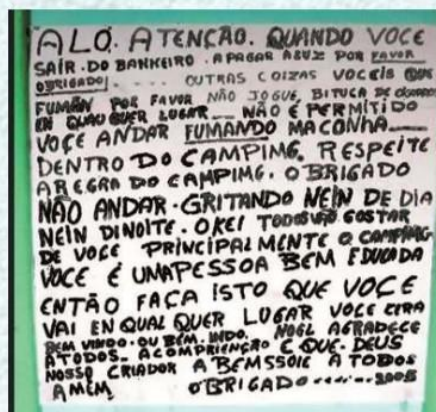 ALÔ. ATENÇÃO. QUANDO VOCE
SAIR. DO BANHEIRO. APAGAR A LUZ POR FAVOR
OBRIGADO! .... OUTRAS COIZAS VOCEIS QUE
FUMÃN POR FAVOR NÃO JOGUE BITUCA DE CIGARRO
EN QUAUQUER LUGAR.... NÃO É PERMITIDO
VOÇE ANDAR FUMANDO MACONHA
DENTRO DO CAMPING. RESPEITE
A REGRA DO CAMPING. OBRIGADO
NÃO ANDAR. GRITANDO NEIN DE DIA
NEIN DINOITE. OKEI TODOS VÃO GOSTAR
DE VOCE PRINCIPALMENTE O CAMPING
VOCE É UMAPESSOA BEM EDUCADA
ENTÃO FAÇA ISTO QUE VOCE
VAI EN QUAL QUER LUGAR VOCE CERA
BEM VINDO. OU BEM. INDO. NOEL AGRADECE
A TODOS. A COMPRIENÇÃO E QUE. DEUS
NOSSO CRIADOR A BEMSSOIE A TODOS
AMÉM. OBRIGADO ........